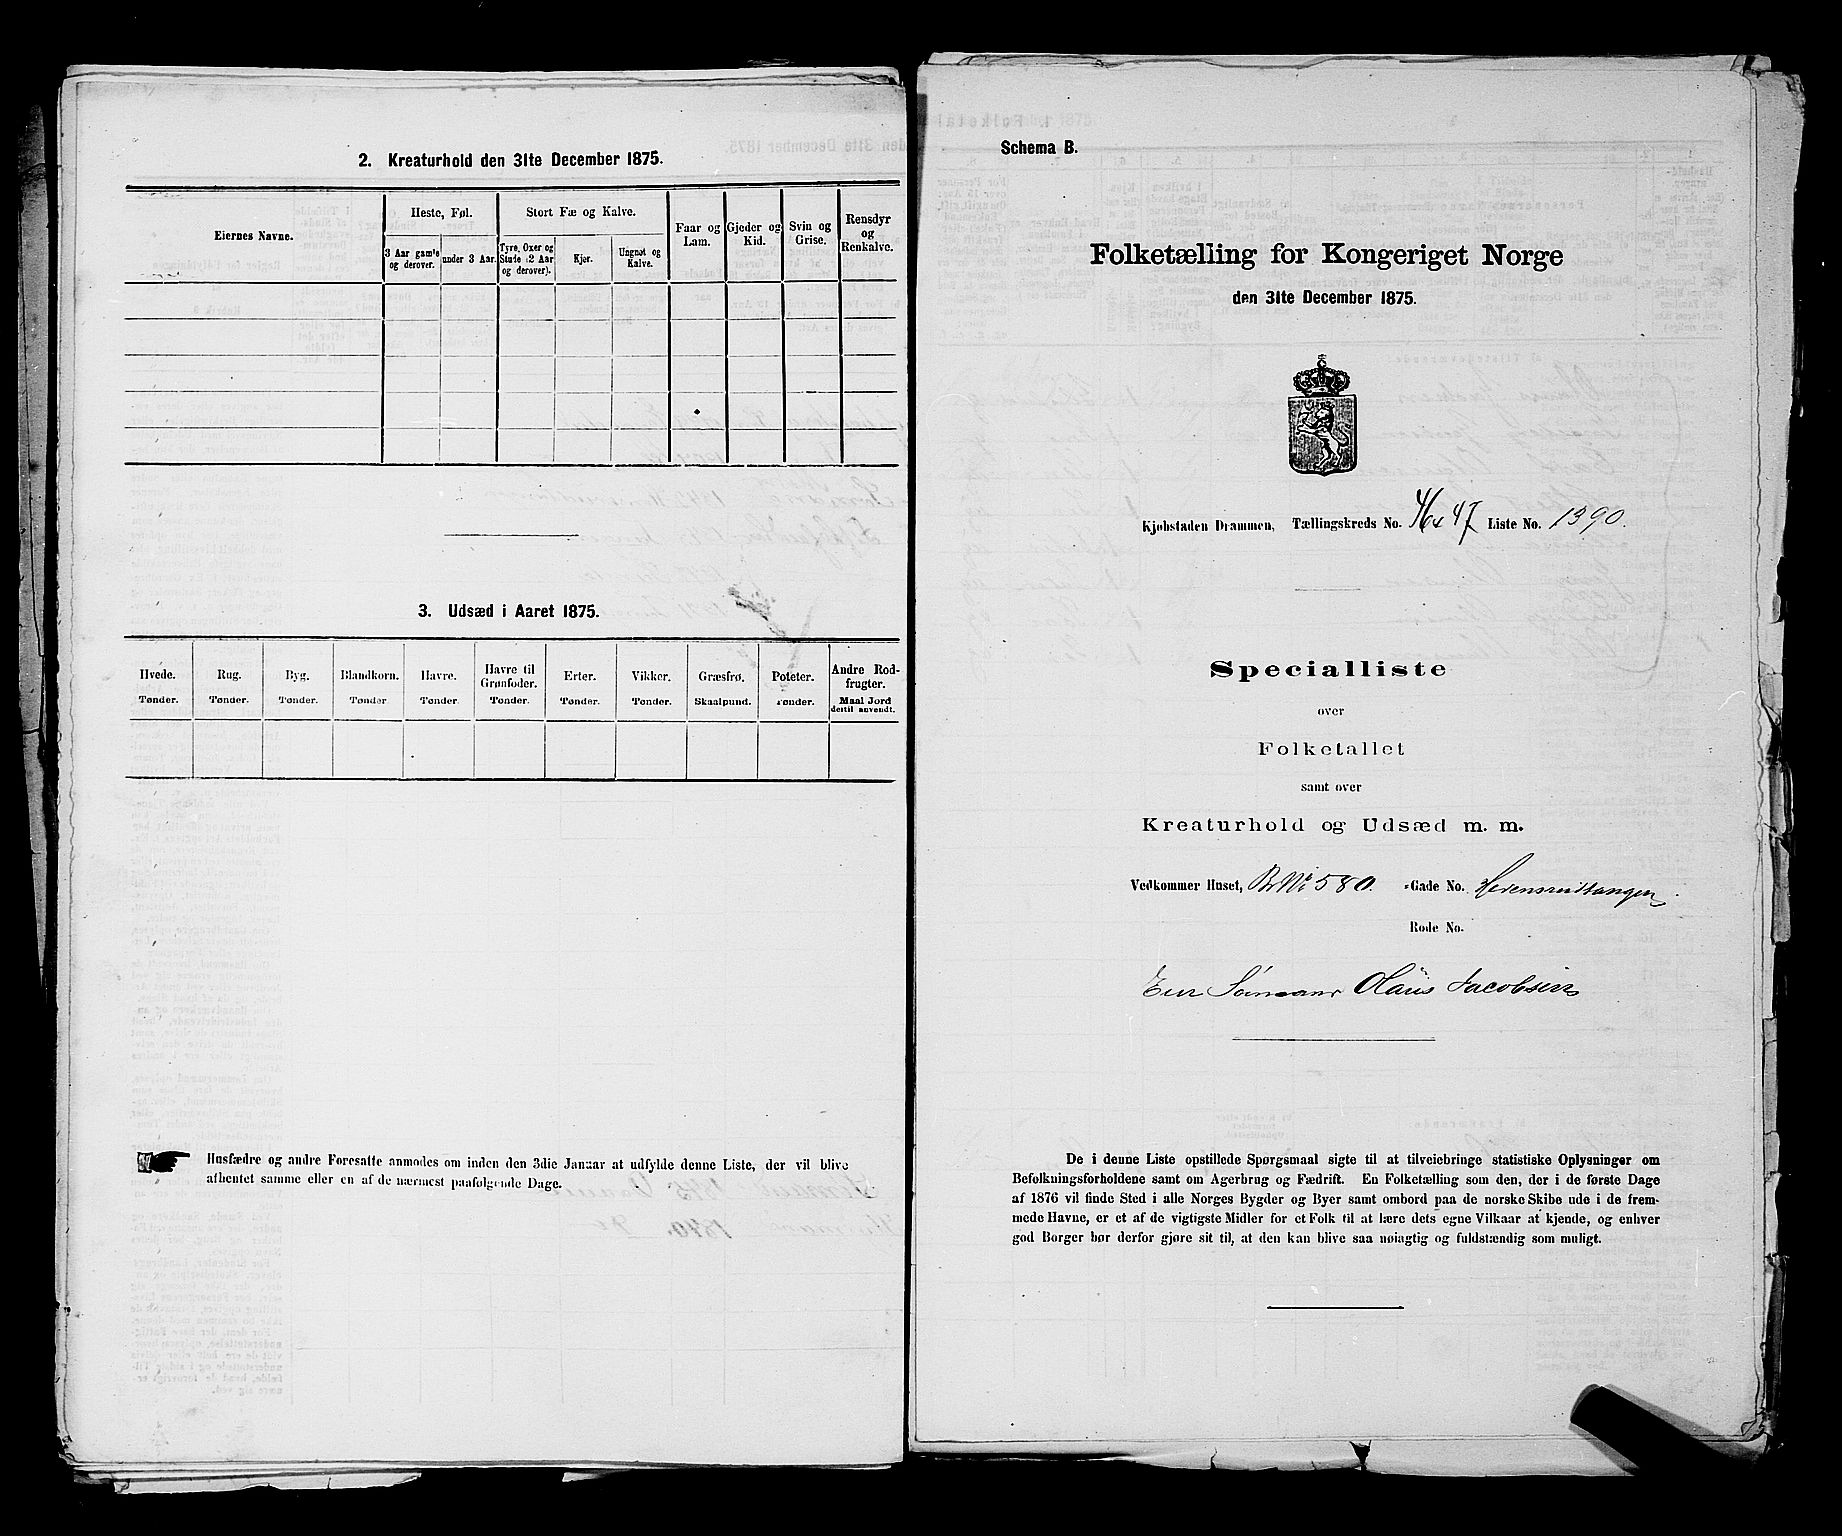 2. Kreaturhold den 31te December 1875.
Eiernes Navne.
Heste, Føl.
3 Aar gamle og derover.
under 3 Aar.
Stort Fæ og Kalve.
Tyre, Oxer og Stude (2 Aar og derover).
Kjer.
Ungnøt og Kalve.
Faar og Lam.
Gjeder og Kid.
Svin og Grise.
Rensdyr og Renkalve.
3. Udsæd i Aaret 1875.
Hvede. Rug. Byg. Blandkorn. Havre. Havre til Grønfoder. Erter. Vikker. Græsfrø. Poteter. Andre Rodfrugter.
Tønder. Tønder. Tønder. Tønder Tønder. Tønder. Tønder. Tønder. Skaalpund. Tønder. Maal Jord dertil anvendt.
Husfædre og andre Foresatte anmodes om inden den 3die Januar at udfylde denne Liste, der vil blive
afhentet samme eller en af de nærmest paafølgende Dage.
Schema B.
Folketælling for Kongeriget Norge
den 31te December 1875.
Kjøbstaden Drammen, Tællingskreds No. 46 & 47 Liste No. 1390.
Specialliste
over
Folketallet
samt over
Kreaturhold og Udsæd m. m.
Vedkommer Huset, BNº 580. -Gade No.
Rode No.
Eier Sømand Hans Jacobsen
De i denne Liste opstillede Spørgsmaal sigte til at tilveiebringe statistiske Oplysninger om
Befolkningsforholdene samt om Agerbrug og Fædrift. En Folketælling som den, der i de første Dage
af 1876 vil finde Sted i alle Norges Bygder og Byer samt ombord paa de norske Skibe ude i de frem-
mede Havne, er et af de vigtigste Midler for et Folk til at lære dets egne Vilkaar at kjende, og enhver
god Borger bør derfor gjøre sit til, at den kan blive saa nøiagtig og fuldstændig som muligt.